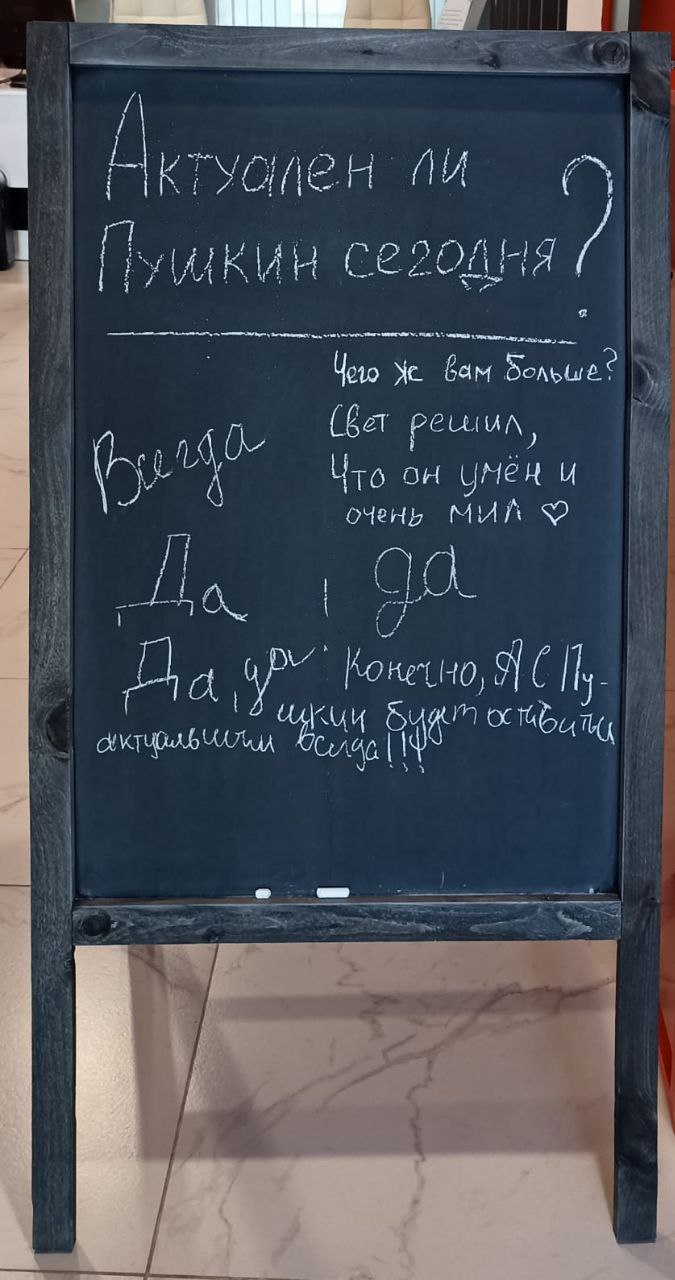 Актуален ли
Пушкин сегодня?
Чего ж вам больше?
Свет решил,
Что он умён и
очень мил ♡
Всегда
Да, да
Да, да. Конечно, А С Пу-
шкин будет оставаться
актуальным всегда!!!